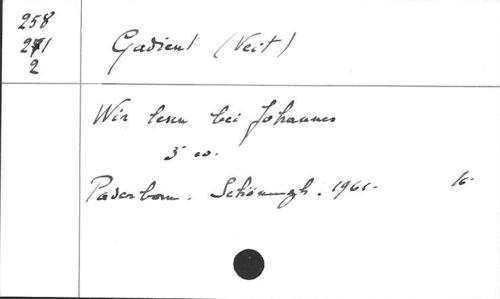 258
271
2
Gadient (Veit)
Wir lesen bei Johannes
5 ed.
Paderborn. Schöningh. 1961. 16.